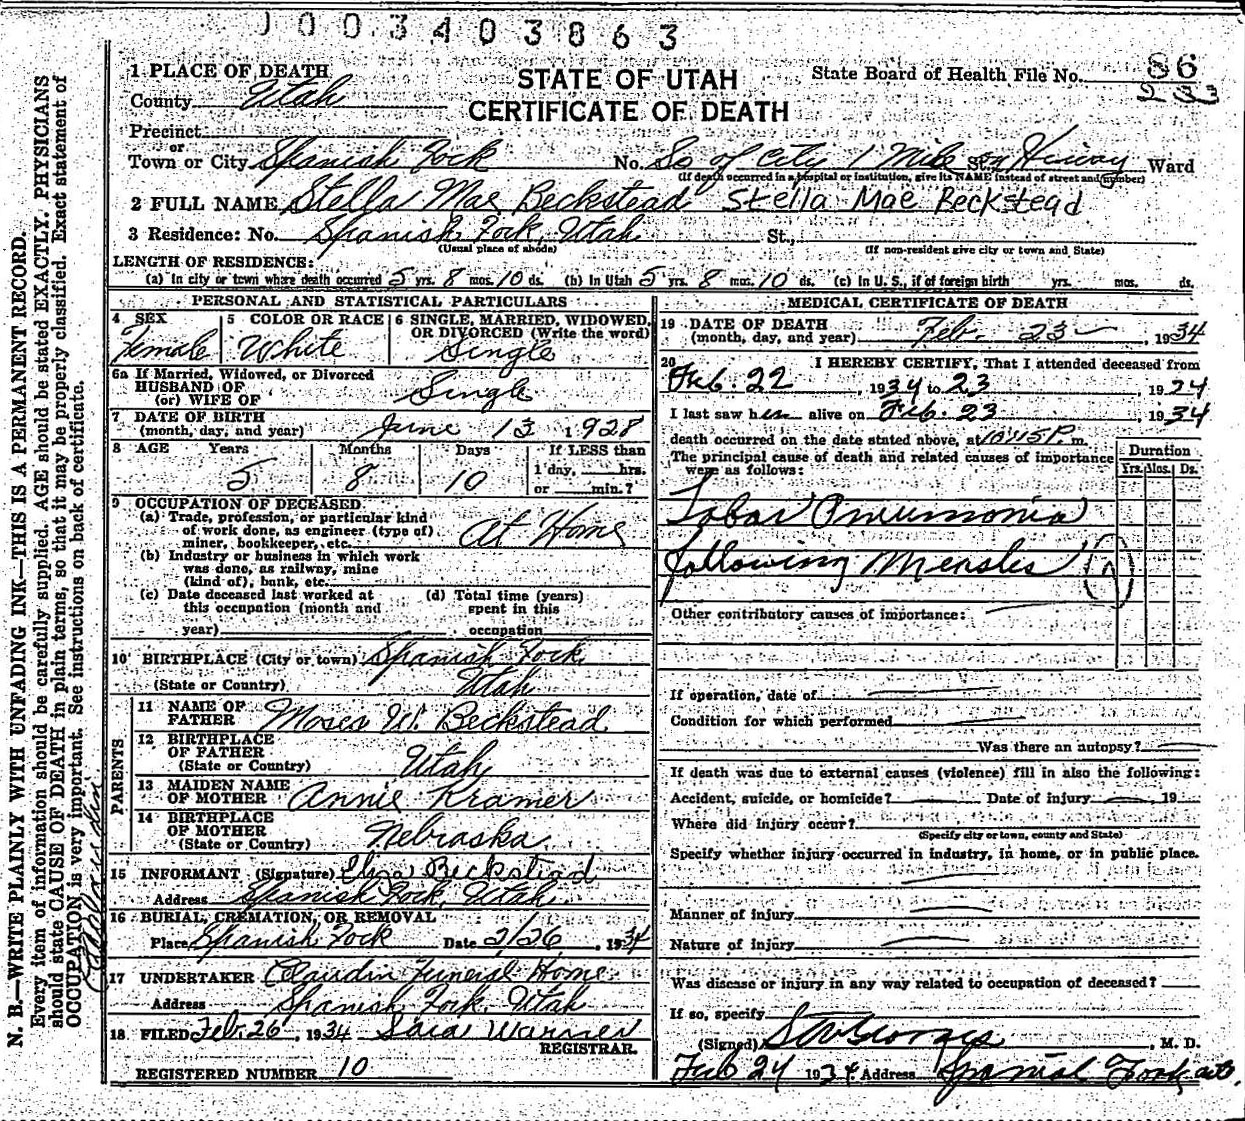 1003403863
1 PLACE OF DEATH
STATE OF UTAH
CERTIFICATE OF DEATH
State Board of Health File No. 86
County Utah
Precinct
or
Town or City Spanish Fork No. So of City 1 Mile St. on Hiway Ward
(If death occurred in a hospital or institution, give its NAME instead of street and number)
2 FULL NAME Stella Mae Beckstead Stella Mae Beckstead
3 Residence: No. Spanish Fork Utah St.,
(Usual place of abode) (If non-resident give city or town and State)
LENGTH OF RESIDENCE:
(a) In city or town where death occurred 5 yrs. 8 mos. 10 ds. (b) In Utah 5 yrs. 8 mos. 10 ds. (c) In U. S., if of foreign birth yrs. mos. ds.
PERSONAL AND STATISTICAL PARTICULARS
4 SEX
Female
5 COLOR OR RACE
White
6 SINGLE, MARRIED, WIDOWED, OR DIVORCED (Write the word)
Single
6a If Married, Widowed, or Divorced
HUSBAND OF
(or) WIFE OF
Single
7 DATE OF BIRTH
(month, day, and year) June 13 1928
8 AGE Years Months Days If LESS than
5 8 10 1 day, hrs.
or min.?
9 OCCUPATION OF DECEASED
(a) Trade, profession, or particular kind
of work done, as engineer (type of)
miner, bookkeeper, etc. At Home
(b) Industry or business in which work
was done, as railway, mine
(kind of), bank, etc.
(c) Date deceased last worked at
this occupation (month and
year)
(d) Total time (years)
spent in this
occupation
10 BIRTHPLACE (City or town) Spanish Fork
(State or Country) Utah
PARENTS
11 NAME OF
FATHER Moses W. Beckstead
12 BIRTHPLACE
OF FATHER
(State or Country) Utah
13 MAIDEN NAME
OF MOTHER Annie Kramer
14 BIRTHPLACE
OF MOTHER
(State or Country) Nebraska
15 INFORMANT (Signature) Eliza Beckstead
Address Spanish Fork, Utah
16 BURIAL, CREMATION, OR REMOVAL
Place Spanish Fork Date 2/26, 1934
17 UNDERTAKER Claudin Funeral Home
Address Spanish Fork, Utah
18 FILED Feb. 26, 1934 Sara Warner
REGISTRAR.
REGISTERED NUMBER 10
MEDICAL CERTIFICATE OF DEATH
19 DATE OF DEATH
(month, day, and year) Feb. 23, 1934
20 I HEREBY CERTIFY, That I attended deceased from
Feb. 22 1934 to 23, 1934
I last saw her alive on Feb. 23, 1934
death occurred on the date stated above, at 10:15 P. m.
The principal cause of death and related causes of importance
were as follows:
Duration
Yrs. Mos. Ds.
Lobar Pneumonia
following Measles
Other contributory causes of importance:
If operation, date of
Condition for which performed
Was there an autopsy?
If death was due to external causes (violence) fill in also the following:
Accident, suicide, or homicide? Date of injury, 19
Where did injury occur?
(Specify city or town, county and State)
Specify whether injury occurred in industry, in home, or in public place.
Manner of injury
Nature of injury
Was disease or injury in any way related to occupation of deceased?
If so, specify
(Signed) , M. D.
Feb 24 1934 Address Spanish Fork
N. B.—WRITE PLAINLY WITH UNFADING INK—THIS IS A PERMANENT RECORD.
Every item of information should be carefully supplied. AGE should be stated EXACTLY. PHYSICIANS
should state CAUSE OF DEATH in plain terms, so that it may be properly classified. Exact statement of
OCCUPATION is very important. See instructions on back of certificate.